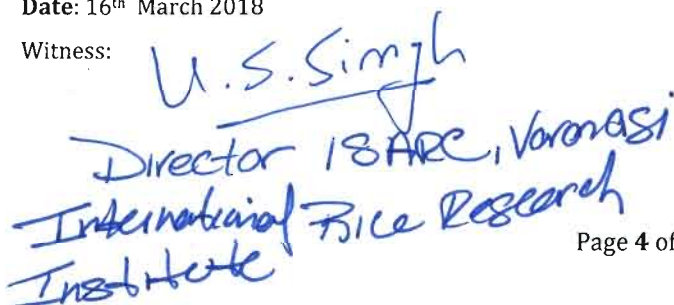 Date: 16th March 2018
Witness:
U.S. Singh
Director ISARC, Varanasi
International Rice Research
Institute
Page 4 of